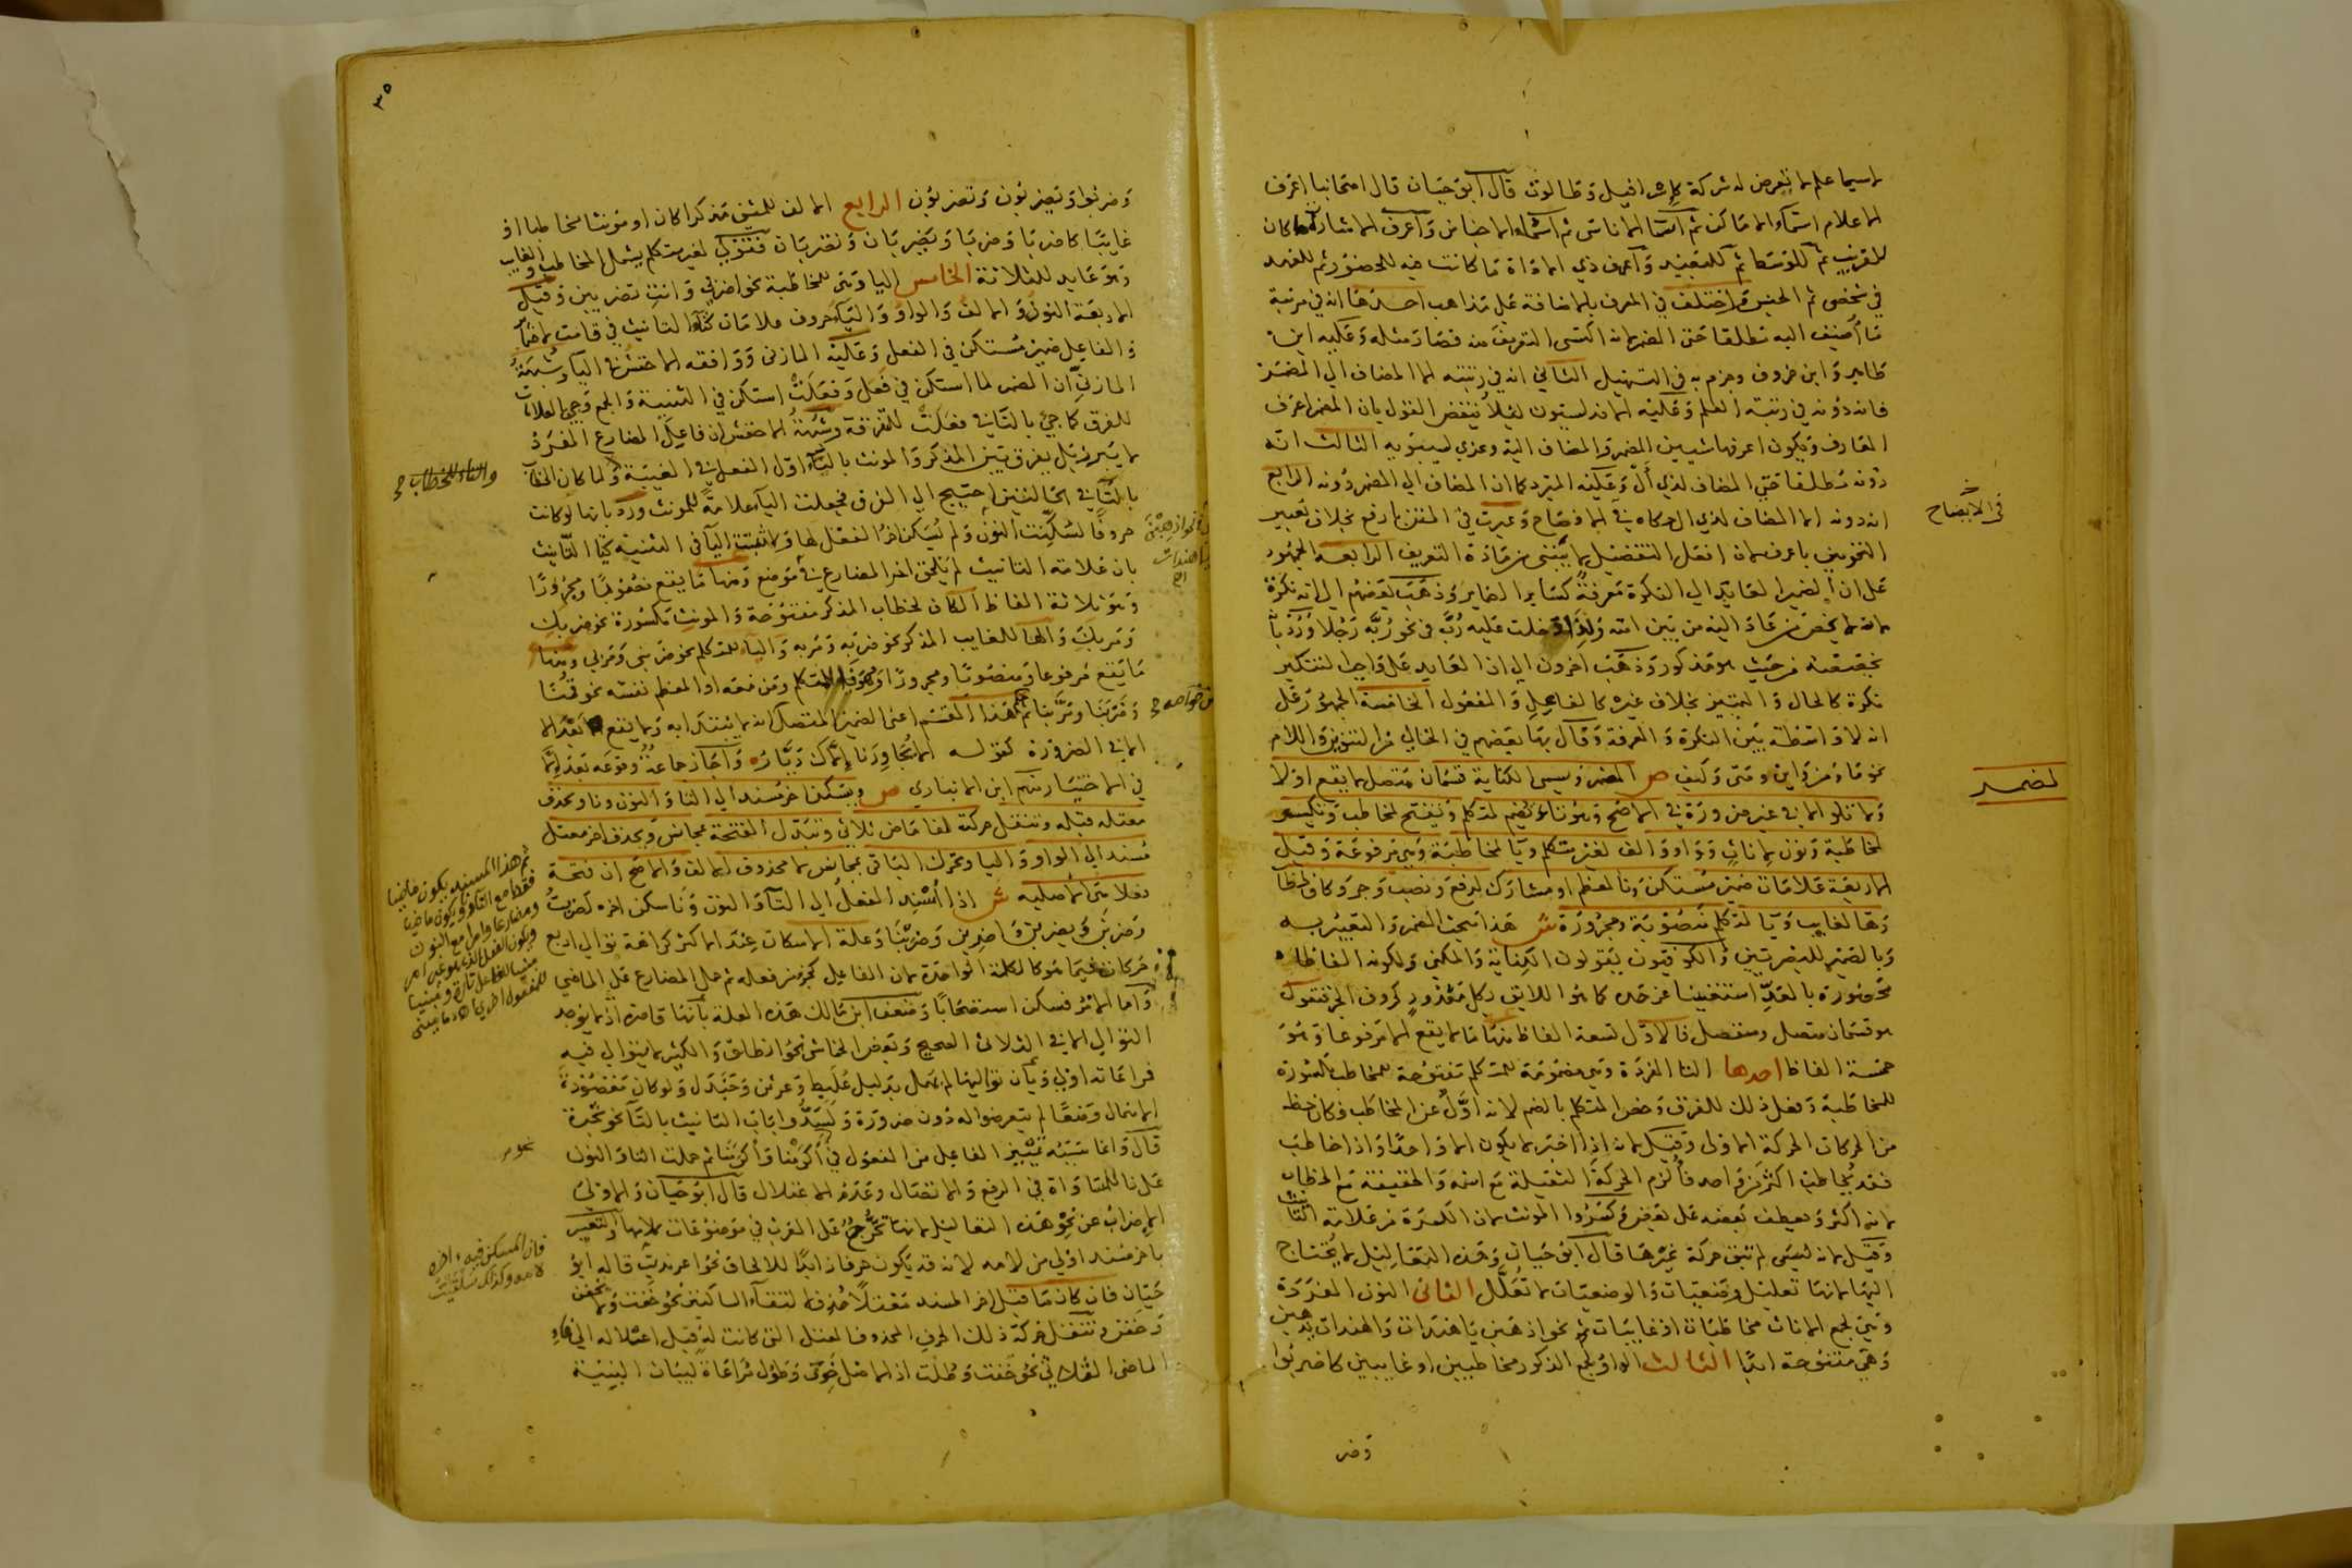 لا سيما علم لا تعرض له شركة كإسرافيل وطالوت قال أبو حيان قال اصحابنا اعرف
الاعلام اسماء الاماكن ثم اسماء الاناس ثم اسماء الاجناس واعرف الاشارة ما كان
للقريب ثم للوسط ثم للبعيد واعرف ذي الاداة ما كانت فيه للحضور ثم للعهد
في شخص ثم الجنس واختلف في المعرف بالاضافة على مذاهب احدها انه في مرتبة
ما أضيف اليه مطلقا حتى المضمر لانه اكتسى التعريف منه فصار مثله وعليه ابن
طاهر وابن خروف وجزم به في التسهيل الثاني انه في رتبته الا المضاف الى المضمر
فانه دونه في رتبة العلم وعليه الاندلسيون لئلا ينقض القول بان المضمر اعرف
المعارف ويكون اعرفها شيين المضمر والمضاف اليه وعزي لسيبويه الثالث انه
دونه مطلقا حتى المضاف لذي أل وعليه المبرد كما ان المضاف الى المضمر دونه الرابع
انه دونه الا المضاف لذي ال حكاه في الافصاح وعبرت في المتن بارفع بخلاف تعبير
النحويين باعرف لان افعل التفضيل لا يبنى من مادة التعريف الرابعة الجمهور
على ان الضمير العائد الى النكرة معرفة كسائر الضماير وذهب بعضهم الى انه نكرة
لانه لا يخص من عاد اليه من بين امته ولذا دخلت عليه رب في نحو ربه رجلا ورد بأنه
يخصصه من حيث هو مذكور وذهب اخرون الى ان العايد على واجب التنكير
نكرة كالحال والتمييز بخلاف غيره كالفاعل والمفعول الخامسة الجمهور على
انه لا واسطة بين النكرة والمعرفة وقال بها بعضهم في الخالي من التنوين واللام
نحو ما ومن واين ومتى وكيف ص المضمر ويسمى الكناية قسمان متصل لا يقع اولا
ولا تلو الا في غير ضرورة في الاصح وهو تاء تضم لمتكلم وتفتح لمخاطب وتكسر
لمخاطبة ونون لاناث وواو والف لغير متكلم ويا لمخاطبة وهي مرفوعة وقيل
الاربعة علامات ضمير مستكن ونا لمعظم او مشارك لرفع ونصب وجر وكاف لخطاب
وها لغايب ويا لمتكلم منصوبة ومجرورة ش هذا مبحث المضمر والتعبير به
وبالضمير للبصريين والكوفيون يقولون الكناية والمكني ولكونه الفاظا
محصورة بالعد استغنينا عن حده كما هو اللائق بكل معدود كحروف الجر فنقول
هو قسمان متصل ومنفصل فالاول تسعة الفاظ منها ما لا يقع الا مرفوعا وهو
خمسة الفاظ احدها التا المفردة وهي مضمومة للمتكلم مفتوحة للمخاطب مكسورة
للمخاطبة وفعل ذلك للفرق وخص المتكلم بالضم لانه اول عن المخاطب فكان حظه
من الحركات الحركة الاولى وقيل لانه اذا اخبر لا يكون الا واحدا واذا خاطب
فقد يخاطب اكثر من واحد فألزم الحركة الثقيلة مع اسمه والخفيفة مع الخطاب
لانه اكثر ويعطف بعضه على بعض وكسروا المونث لان الكسرة من علامة التانيث
وقيل لانه ليس لم تبق حركة غيرها قال أبو حيان وهذه التعاليل لا يحتاج
اليها لانها تعليل وضعيات والوضعيات لا تعلل الثاني النون المفردة
وهي لجمع الاناث مخاطبات او غايبات نحو اذهبن يا هندات والهندات يذهبن
وهي مفتوحة ابدا الثالث الواو لجمع الذكور مخاطبين او غايبين كاضربوا
وضر
في الايضاح
لضمير
٣٥
وضربوا ويضربون وتضربون الرابع الالف للمثنى مذكرا كان او مونثا مخاطبا او
غايبا كاضربا وضربا ويضربان وتضربان فقولي لغير متكلم يشمل المخاطب والغايب
وهو عايد للثلاثة الخامس اليا وهي للمخاطبة نحو اضربي وانت تضربين وقيل
الاربعة النون والالف والواو والياء حروف علامات كتاء التانيث في قامت لا ضماير
والفاعل ضمير مستكن في الفعل وعليه المازني ووافقه الاخفش في اليا وشبهة
المازني أن الضمير لما استكن في فعل وفعلت استكن في التثنية والجمع وجيء بالعلامات
للفرق كما جيء بالتاء في فعلت للفرق وشبهة الاخفش ان فاعل المضارع المفرد
لا يبرز بل يفرق بين المذكر والمونث بالتاء اول الفعل في الغيبة ولما كان الخطاب
بالتاء في الحالتين احتيج الى الفرق فجعلت الياء علامة للمونث ورد بانها لو كانت
حروفا لسكنت النون ولم يسكن اخر الفعل لها ولا ثبتت اليا في التثنية كتا التانيث
بان علامة التانيث لم تلحق اخر المضارع في موضع ومنها ما يقع منصوبا ومجرورا
وهو ثلاثة الفاظ الكاف لخطاب المذكر مفتوحة والمونث مكسورة نحو ضربك
ومر بك والها للغايب المذكر نحو ضربه ومر به والياء للمتكلم نحو ضربني ومر بي ومنها
ما يقع مرفوعا ومنصوبا ومجرورا وهو نا للمتكلم ومن معه او المعظم نفسه نحو قمنا
وضربنا ومر بنا ثم هذا القسم اعني الضمير المتصل انه لا يبتدا به ولا يقع بعد الا
الا في الضرورة كقوله الا يجاورنا إلاك ديار وأجاز جماعة وقوعه بعد إلا
في الاختيار منهم ابن الانباري ص ويسكن اخر مسند الى التا والنون ونا ويحذف
معتل قبله وتنقل حركته لفا ماض ثلاثي وتبدل الفتحة بمجانس ويحذف اخر معتل
مسند الى الواو واليا ويحرك الباقي بمجانس لا محذوف الالف والاصح ان فتحة
فعلا متى أصلية ش اذا أسند الفعل الى التاء والنون ونا سكن اخره كضربت
وضربن ويضربن واضربن وضربنا وعلة الاسكان عند الاكثر كراهة توالي اربع
حركات فيما هو كالكلمة الواحدة لان الفاعل كجزء من فعله ثم حمل المضارع على الماضي
وأما الامر فسكن استصحابا وضعف ابن مالك هذه العلة بأنها قاصرة اذ لا يوجد
التوالي الا في الثلاثي الصحيح وبعض الخماسي نحو انطلق والكثير لا يتوالى فيه
فمراعاته اولى وبان تواليها لم يهمل بدليل علبط وعرتن وجندل ولو كان مقصودة
الاهمال وضعا لم يتعرضوا له دون ضرورة ولسدوا باب التانيث بالتاء نحو شجرة
قال وانما سببه تمييز الفاعل من المفعول في أكرمنا وأكرمنا ثم حملت التا والنون
على نا للمساواة في الرفع والاتصال وعدم الاعتلال قال أبو حيان والاولى
الاضراب عن نحو هذه التعاليل لانها تخرص على العرب في موضوعات كلامها والتعبير
باخر مسند اولى من لامه لانه قد يكون حرفا زايدا للالحاق نحو اعرنديت قاله ابو
حيان فان كان ما قبل اخر المسند معتلا حذف لالتقاء الساكنين نحو خفت ولا تخفن
وخفن وتنقل حركة ذلك الحرف المحذوف المعتل التي كانت له قبل اعتلاله الى فاء
الماضي الثلاثي نحو خفت وطلت اذ الاصل خوف وطول مراعاة لبيان البنية
والتاء للخطاب
ثم هذا المسند يكون ماضيا
فقط مع التاء ويكون ماضيا
ومضارعا وامرا مع النون
فان المسكن فيه اخره